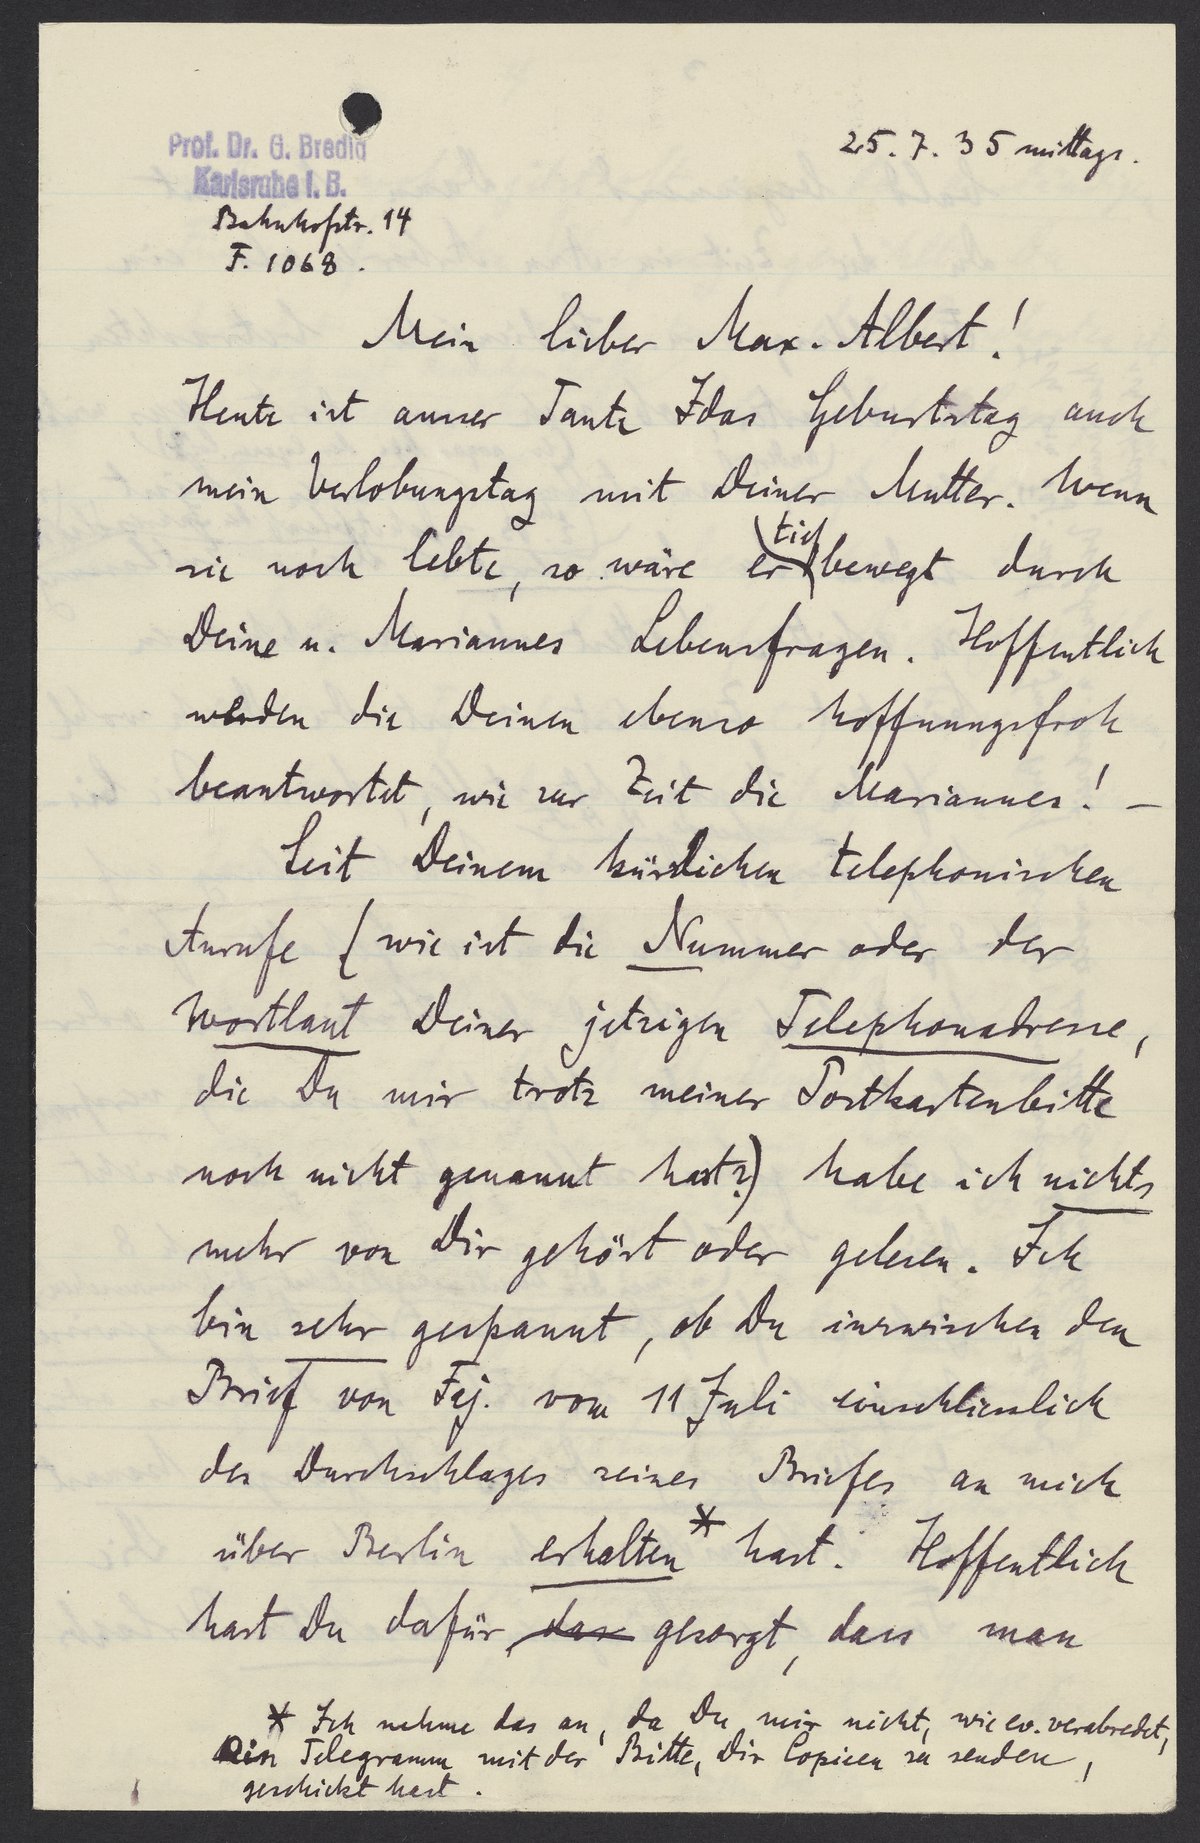 Prof. Dr. G. Bredig
Karlsruhe i. B.
Bahnhofstr. 14
F. 1068.
25.7.35 mittags.
Mein lieber Max-Albert!
Heute ist ausser Tante Idas Geburtstag auch
mein Verlobungstag mit Deiner Mutter. Wenn
sie noch lebte, so wäre er tief bewegt durch
Deine u. Mariannes Lebensfragen. Hoffentlich
werden die Deinen ebenso hoffnungsfroh
beantwortet, wie zur Zeit die Mariannes! —
Seit Deinem kürzlichen telephonischen
Anrufe (wie ist die Nummer oder der
Wortlaut Deiner jetzigen Telephonadresse,
die Du mir trotz meiner Postkartenbitte
noch nicht genannt hast?) habe ich nichts
mehr von Dir gehört oder gelesen. Ich
bin sehr gespannt, ob Du inzwischen den
Brief von Faj. vom 11 Juli einschliesslich
des Durchschlages seines Briefes an mich
über Berlin erhalten* hast. Hoffentlich
hast Du dafür das gesorgt, dass man
* Ich nehme das an, da Du mir nicht, wie ev. verabredet,
ein Telegramm mit der Bitte, Dir Copieen zu senden,
geschickt hast.